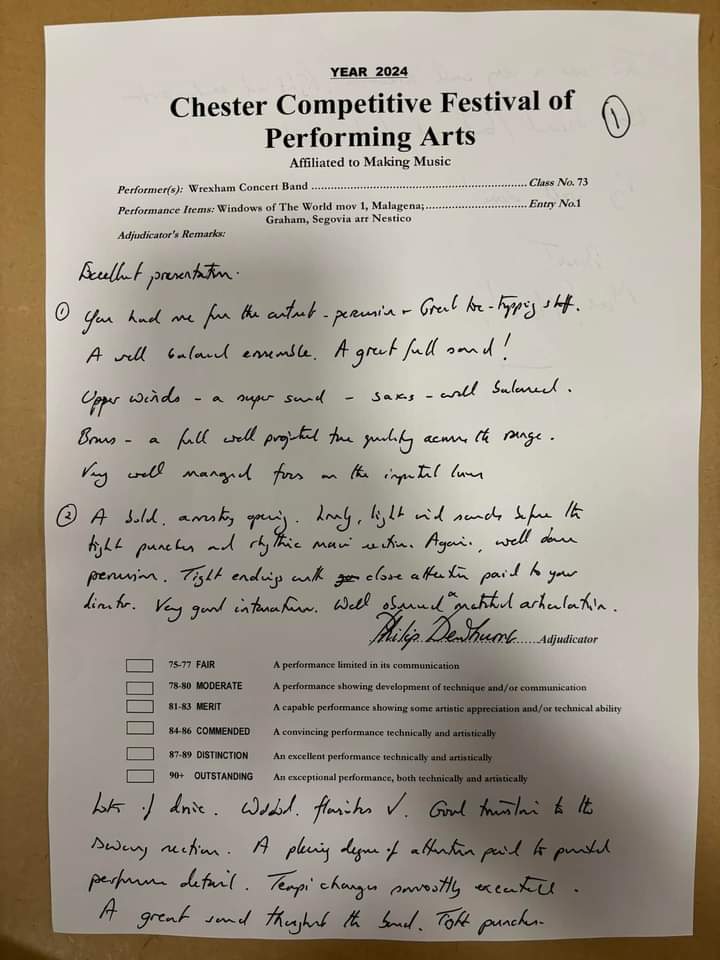 YEAR 2024
Chester Competitive Festival of
Performing Arts
1
Affiliated to Making Music
Performer(s): Wrexham Concert Band ........ Class No. 73
Performance Items: Windows of The World mov 1, Malagena; ........ Entry No.1
Graham, Segovia arr Nestico
Adjudicator's Remarks:
Excellent presentation.
1 You had me from the outset - percussion + Great toe-tapping stuff.
A well balanced ensemble. A great full sound!
Upper winds - a super sound - saxes - well balanced.
Brass - a full well projected tone quality across the range.
Very well managed focus on the important lines
2 A bold, arresting opening. Lovely, light wind sounds before the
tight punches and rhythmic main section. Again, well done
percussion. Tight endings with close attention paid to your
director. Very good intonation. Well observed + matched articulation.
Philip Dewhurst ...... Adjudicator
75-77 FAIR A performance limited in its communication
78-80 MODERATE A performance showing development of technique and/or communication
81-83 MERIT A capable performance showing some artistic appreciation and/or technical ability
84-86 COMMENDED A convincing performance technically and artistically
87-89 DISTINCTION An excellent performance technically and artistically
90+ OUTSTANDING An exceptional performance, both technically and artistically
Lots of drive. ✓. Good transition to the
section. A pleasing degree of attention paid to printed
performance detail. Tempi changes smoothly executed.
A great sound throughout the band. Tight punches.